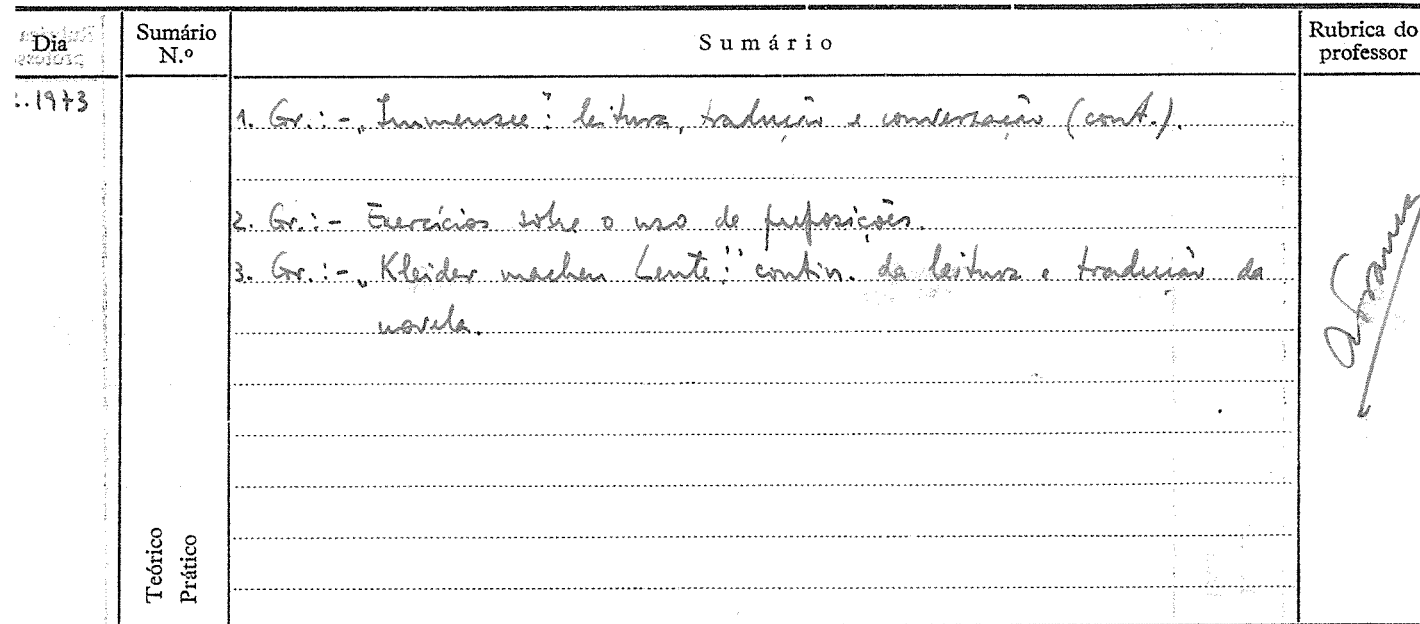 Dia
Sumário N.º
Sumário
Rubrica do professor
.1973
1. Gr.: - „Immensee": leitura, tradução e conversação (cont.).
2. Gr.: - Exercícios sobre o uso de preposições.
3. Gr.: - „Kleider machen Leute": contin. da leitura e tradução da
novela.
Teórico
Prático